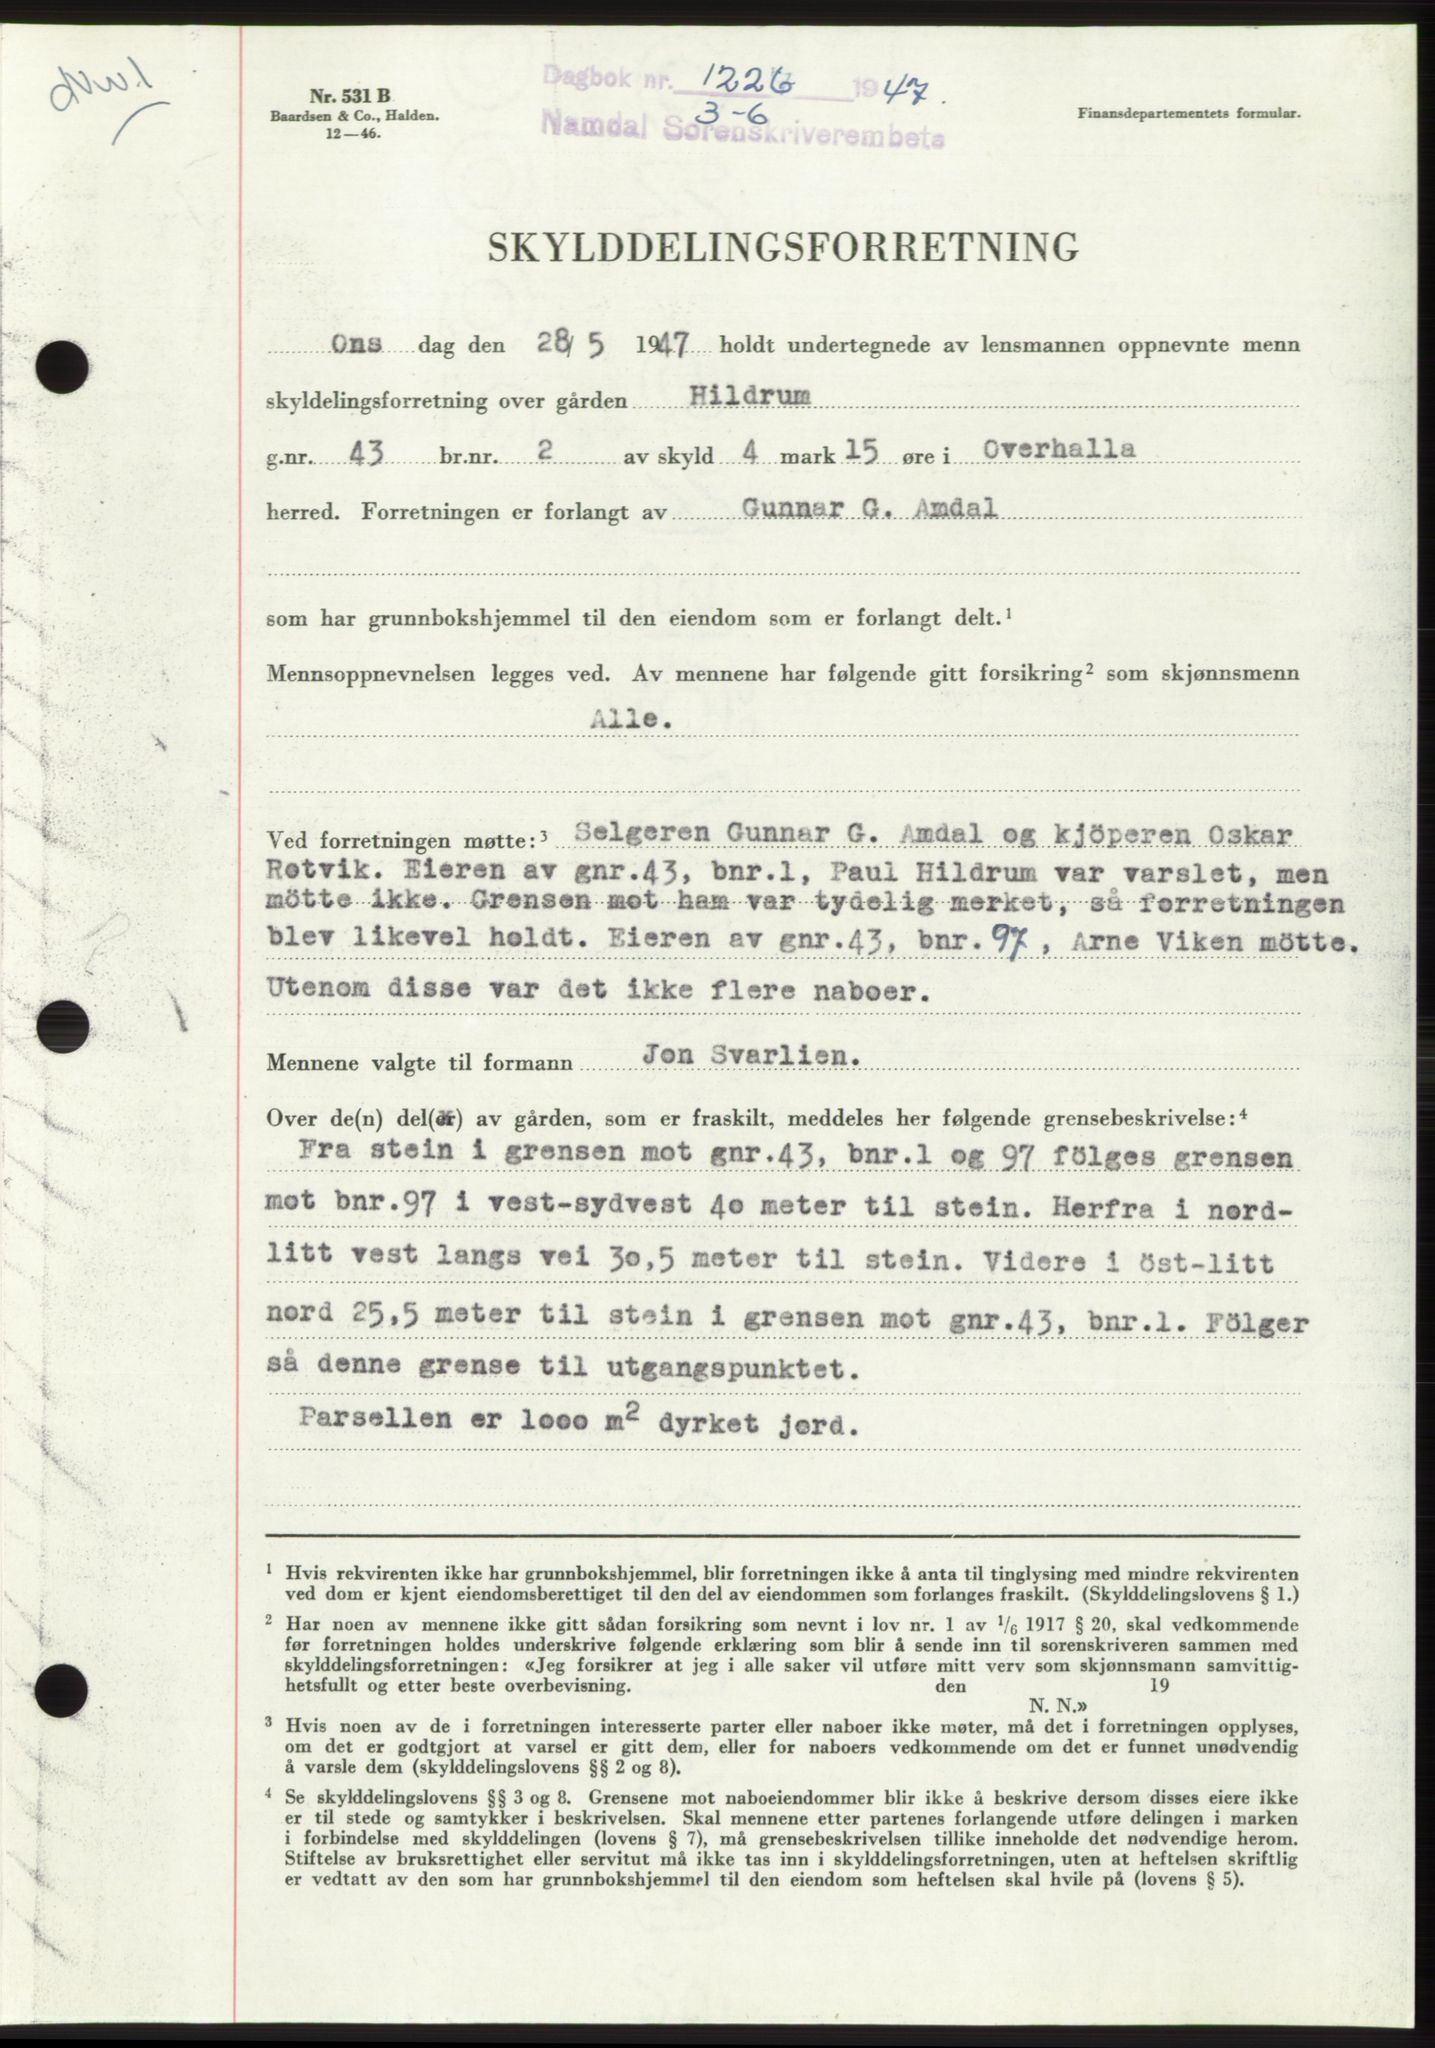 Dagbok nr. 1226 1947.
3-6
Namdal Sorenskriverembete
Nr. 531 B
Baardsen & Co., Halden.
12—46.
Finansdepartementets formular.
SKYLDDELINGSFORRETNING
Ons dag den 28/5 1947 holdt undertegnede av lensmannen oppnevnte menn
skyldelingsforretning over gården Hildrum
g.nr. 43 br.nr. 2 av skyld 4 mark 15 øre i Overhalla
herred. Forretningen er forlangt av Gunnar G. Amdal
som har grunnbokshjemmel til den eiendom som er forlangt delt.¹
Mennsoppnevnelsen legges ved. Av mennene har følgende gitt forsikring² som skjønnsmenn
Alle.
Ved forretningen møtte:³ Selgeren Gunnar G. Amdal og kjöperen Oskar
Rotvik. Eieren av gnr.43, bnr.1, Paul Hildrum var varslet, men
mötte ikke. Grensen mot ham var tydelig merket, så forretningen
blev likevel holdt. Eieren av gnr.43, bnr. 97, Arne Viken mötte.
Utenom disse var det ikke flere naboer.
Mennene valgte til formann Jon Svarlien.
Over de(n) del(er) av gården, som er fraskilt, meddeles her følgende grensebeskrivelse:⁴
Fra stein i grensen mot gnr.43, bnr.1 og 97 fölges grensen
mot bnr.97 i vest-sydvest 40 meter til stein. Herfra i nord-
litt vest langs vei 30,5 meter til stein. Videre i öst-litt
nord 25,5 meter til stein i grensen mot gnr.43, bnr.1. Fölger
så denne grense til utgangspunktet.
Parsellen er 1000 m² dyrket jord.
¹ Hvis rekvirenten ikke har grunnbokshjemmel, blir forretningen ikke å anta til tinglysing med mindre rekvirenten
ved dom er kjent eiendomsberettiget til den del av eiendommen som forlanges fraskilt. (Skylddelingslovens § 1.)
² Har noen av mennene ikke gitt sådan forsikring som nevnt i lov nr. 1 av 1/6 1917 § 20, skal vedkommende
før forretningen holdes underskrive følgende erklæring som blir å sende inn til sorenskriveren sammen med
skylddelingsforretningen: «Jeg forsikrer at jeg i alle saker vil utføre mitt verv som skjønnsmann samvittig-
hetsfullt og etter beste overbevisning. den 19
N. N.»
³ Hvis noen av de i forretningen interesserte parter eller naboer ikke møter, må det i forretningen opplyses,
om det er godtgjort at varsel er gitt dem, eller for naboers vedkommende om det er funnet unødvendig
å varsle dem (skylddelingslovens §§ 2 og 8).
⁴ Se skylddelingslovens §§ 3 og 8. Grensene mot naboeiendommer blir ikke å beskrive dersom disses eiere ikke
er til stede og samtykker i beskrivelsen. Skal mennene etter partenes forlangende utføre delingen i marken
i forbindelse med skylddelingen (lovens § 7), må grensebeskrivelsen tillike inneholde det nødvendige herom.
Stiftelse av bruksrettighet eller servitut må ikke tas inn i skylddelingsforretningen, uten at heftelsen skriftlig
er vedtatt av den som har grunnbokshjemmel til den eiendom som heftelsen skal hvile på (lovens § 5).